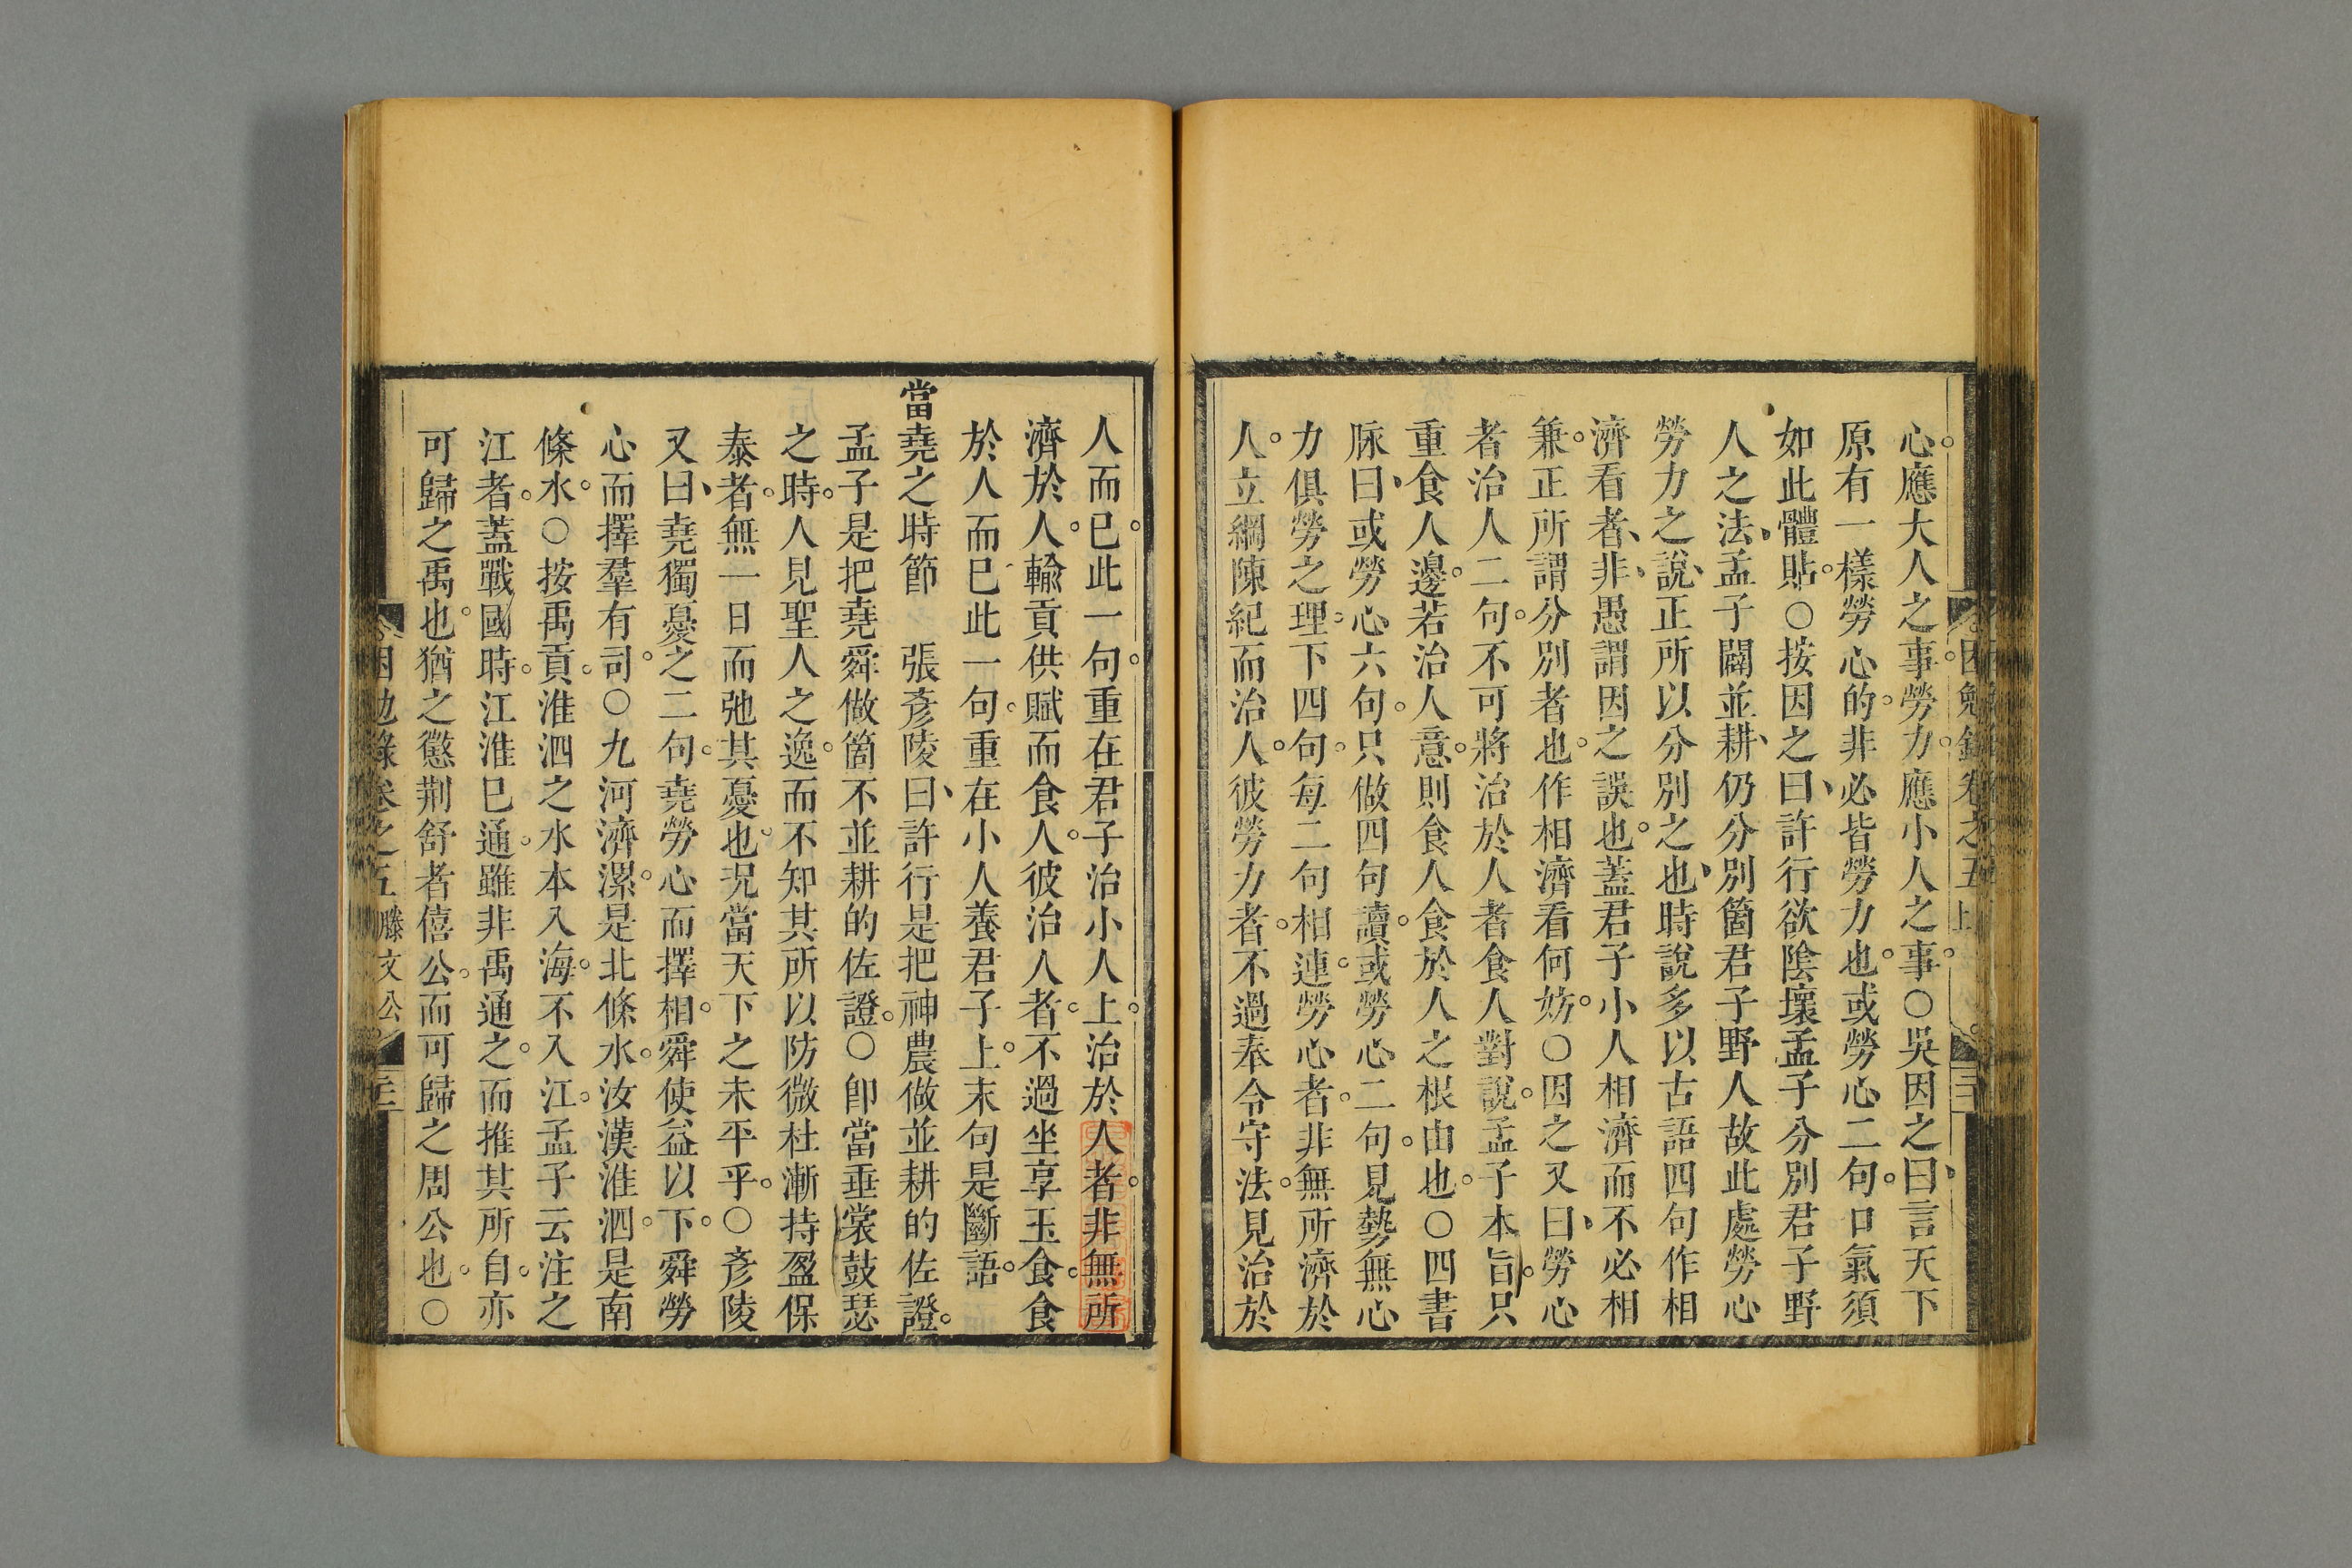 心應大人之事勞力應小人之事○吳因之曰言天下
原有一樣勞心的非必皆勞力也或勞心二句口氣須
如此體貼○按因之曰許行欲陰壞孟子分別君子野
人之法孟子闢並耕仍分別箇君子野人故此處勞心
勞力之說正所以分別之也時說多以古語四句作相
濟看者非愚謂因之誤也蓋君子小人相濟而不必相
兼正所謂分別者也作相濟看何妨○因之又曰勞心
者治人二句不可將治於人者食人對說孟子本旨只
重食人邊若治人意則食人食於人之根由也○四書
脉曰或勞心六句只做四句讀或勞心二句見勢無心
力俱勞之理下四句每二句相連勞心者非無所濟於
人立綱陳紀而治人彼勞力者不過奉令守法見治於
人而已此一句重在君子治小人上治於人者非無所
濟於人輸貢供賦而食人彼治人者不過坐享玉食食
於人而已此一句重在小人養君子上末句是斷語
當堯之時節 張彥陵曰許行是把神農做並耕的佐證
孟子是把堯舜做箇不並耕的佐證○卽當垂裳鼓瑟
之時人見聖人之逸而不知其所以防微杜漸持盈保
泰者無一日而弛其憂也況當天下之未平乎○彥陵
又曰堯獨憂之二句堯勞心而擇相舜使益以下舜勞
心而擇羣有司○九河濟漯是北條水汝漢淮泗是南
條水○按禹貢淮泗之水本入海不入江孟子云注之
江者蓋戰國時江淮已通雖非禹通之而推其所自亦
可歸之禹也猶之懲荆舒者僖公而可歸之周公也○
困勉錄卷之五 滕文公